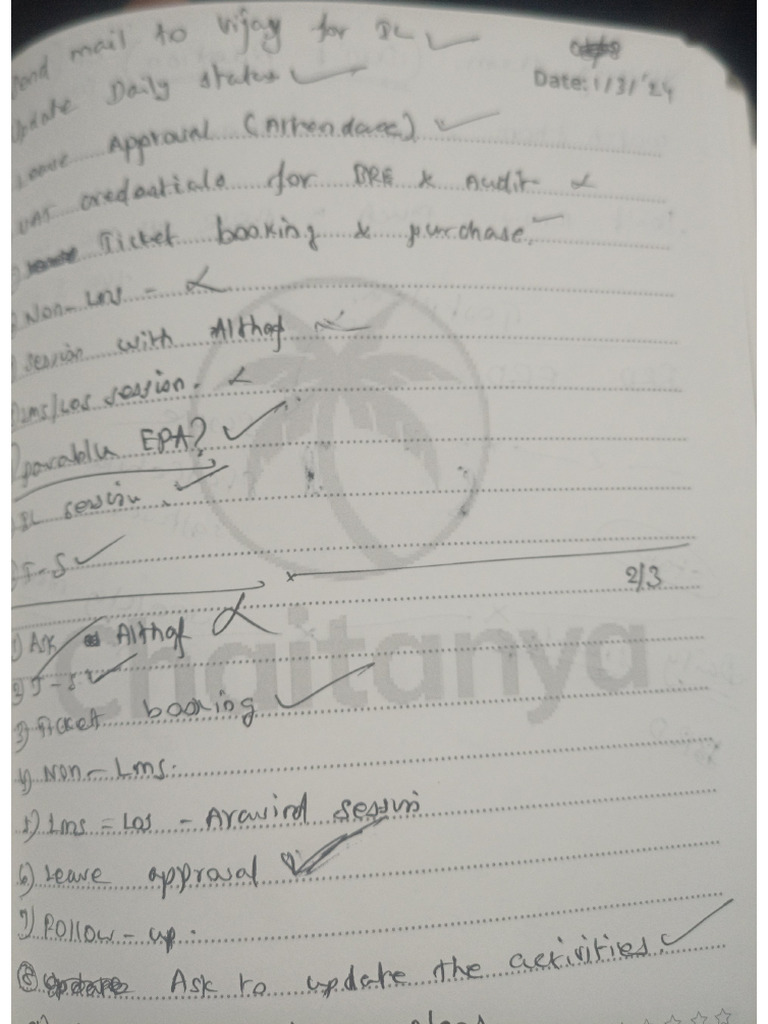 mail to Vijay for IL
Date: 1/3/'24
Daily status
Approval (Attendace)
credentials for BRE & Audit
Ticket booking & purchase.
Non-Lms -
session with Althaf
Lms/Los session.
EPA?
IL session.
T-S
2/3
1) Ask Althaf
2) T-S
3) Ticket booking
4) Non-Lms.
5) Lms = Los - Aravind session
6) Leave approval
7) Follow-up.
8) Ask to update the activities.
Chaitanya